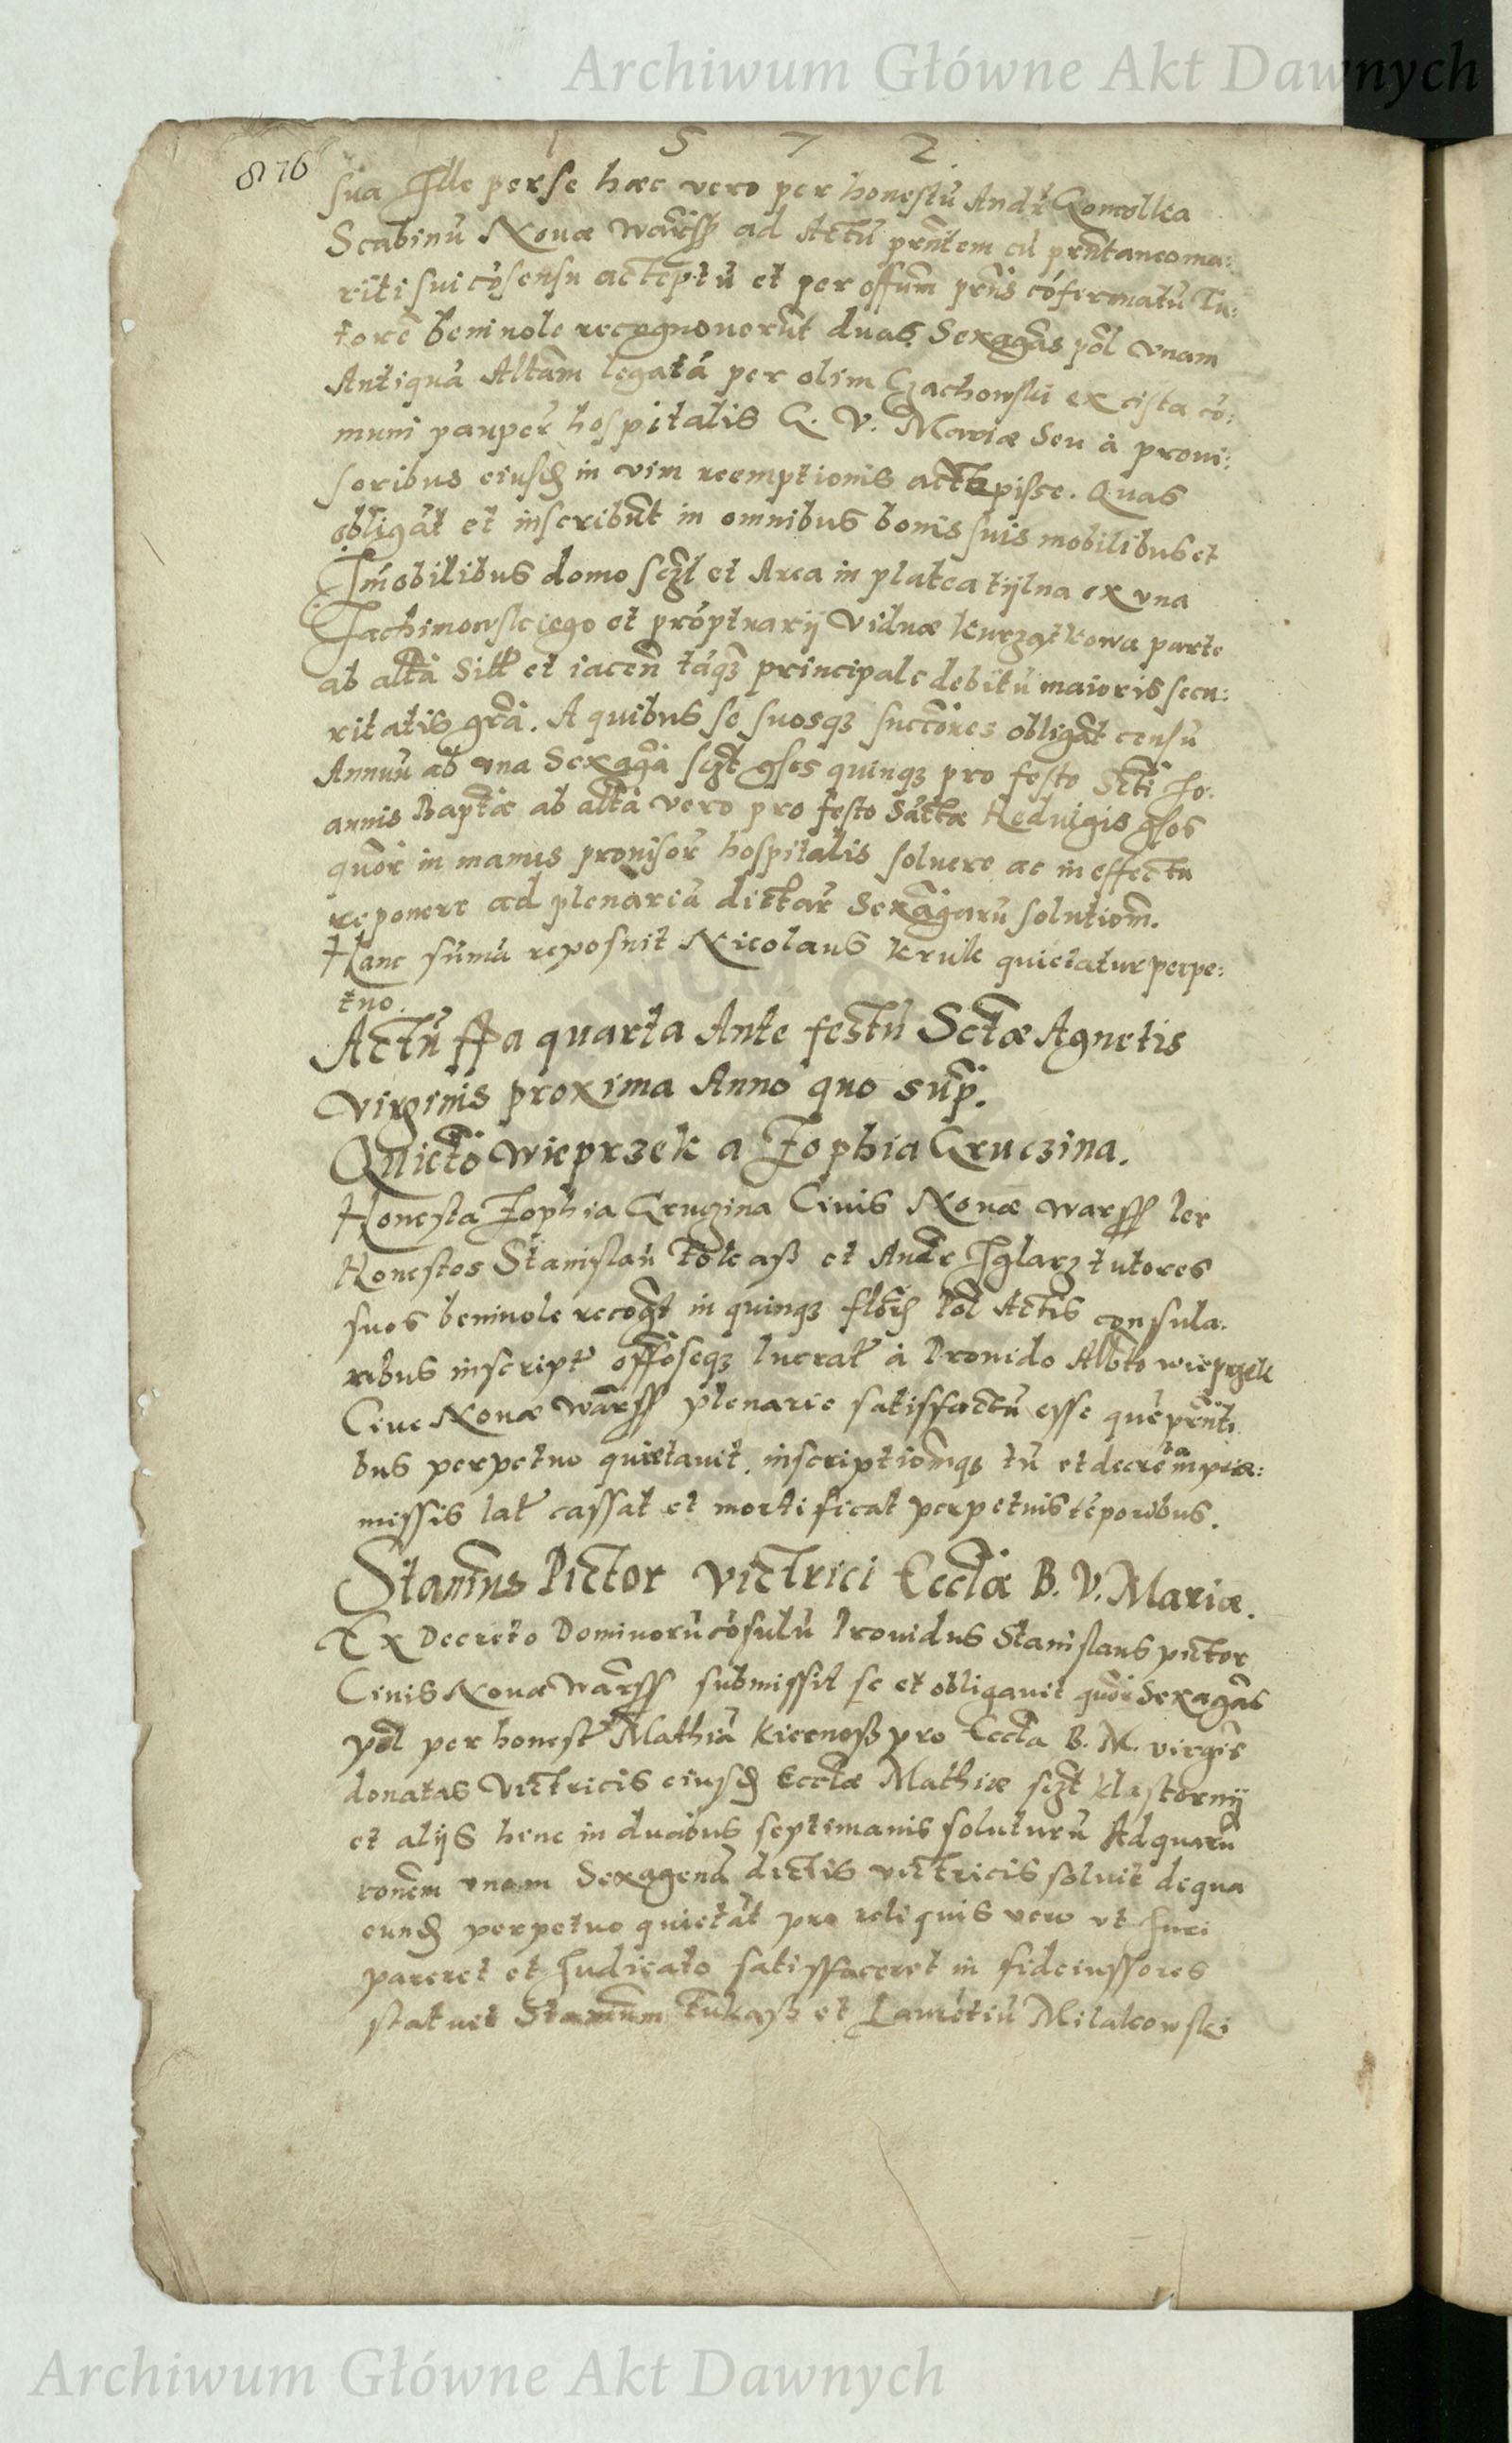 Archiwum Główne Akt Dawnych
1 5 7 2.
876
sua Ille per se hæc vero per honestũ Andr̃ Gomollka
Scabinũ Nouæ Warss̃ ad Actũ pr̃ntem cũ pr̃ntaneo ma:
riti sui cõsensu acceptũ et per offm̃ pr̃ns cõfirmatũ Tu:
torẽ beniuole recognouerũt duas Sexagãs põl vnam
Antiquã Altãm legatã per olim Czachowski ex cista cõ:
muni pauper̃ hospitalis G. V. Mariæ Seu à proui:
soribus eiusd̃ in vim reemptionis accepisse. Quas
obligãt et inscribũt in omnibus bonis suis mobilibus et
Im̃obilibus domo scz̃l et Area in platea tijlna ex vna
Jachimowskiego et prõptuarij Viduæ Kurzątkowa parte
ab altã Sitt̃ et iacen̄ tãq3 principale debitũ maioris secu:
ritatis grã. A quibus se suosq3 succõres obligãt censũ
Annuũ ab vna Sexagã scz̃t gs̃es quinq3 pro festo Sc̃ti Jo:
annis Baptæ ab altã vero pro festo Sãctæ Heduigis gs̃os
quõr in manus prouisor̃ hospitalis soluere ac in effectu
reponere ad plenariã dictar̃ Sexãgarũ solutiõm.
Hanc sũmã reposuit Nicolaus Kruk quietatur perpe:
tuo.
Actũ ffa quarta Ante festũ Sctæ Agnetis
Virginis proxima Anno quo sup̃.
Quietõ Wieprzek a Zophia Gruczina.
Honesta Zophia Gruczina Ciuis Nouæ Warss̃ ler
Honestos Stanislaũ Tolcaß et Andr̃ Iglarz tutores
suos beniuole recogt̃ in quinq3 flõr̃ Põl Actis consula.
ribus inscript̃ offõseq3 lucrat̃ à Prouido Alb̃to wieprzek
Ciue Nouæ Warss̃ plenarie satisfactũ esse quẽ pr̃nti
bus perpetuo quietauit. inscriptiõmq3 tũ et decreta in præ:
missis lat̃ cassat et mortificat perpetuis tẽporibus.
Stanis̃us Pictor Victrici Eccl̃æ B. V. Mariæ.
Ex Decreto Dominorũ cõsulũ Prouidus Stanislaus pictor
Ciuis Nouæ Warss̃ submissit se et obligauit quõr Sexagãs
põl per honest̃ Mathiã Kicenoß pro Eccl̃a B. M. virgĩs
donatas Victricis eiusd̃ Eccl̃æ Mathiæ scz̃t Klasztornij
et alijs hinc in duabus septimanis soluturũ Ad quarũ
ronẽm vnam Sexagenã dictis victricis soluit de qua
eund̃ perpetuo quietãt pro reliquis vero vt Iuri
pareret et Iudicato satisfaceret in fideiussores
statuet Stanm̃ Tukaß et Laurẽtiũ Milakowski
Archiwum Główne Akt Dawnych